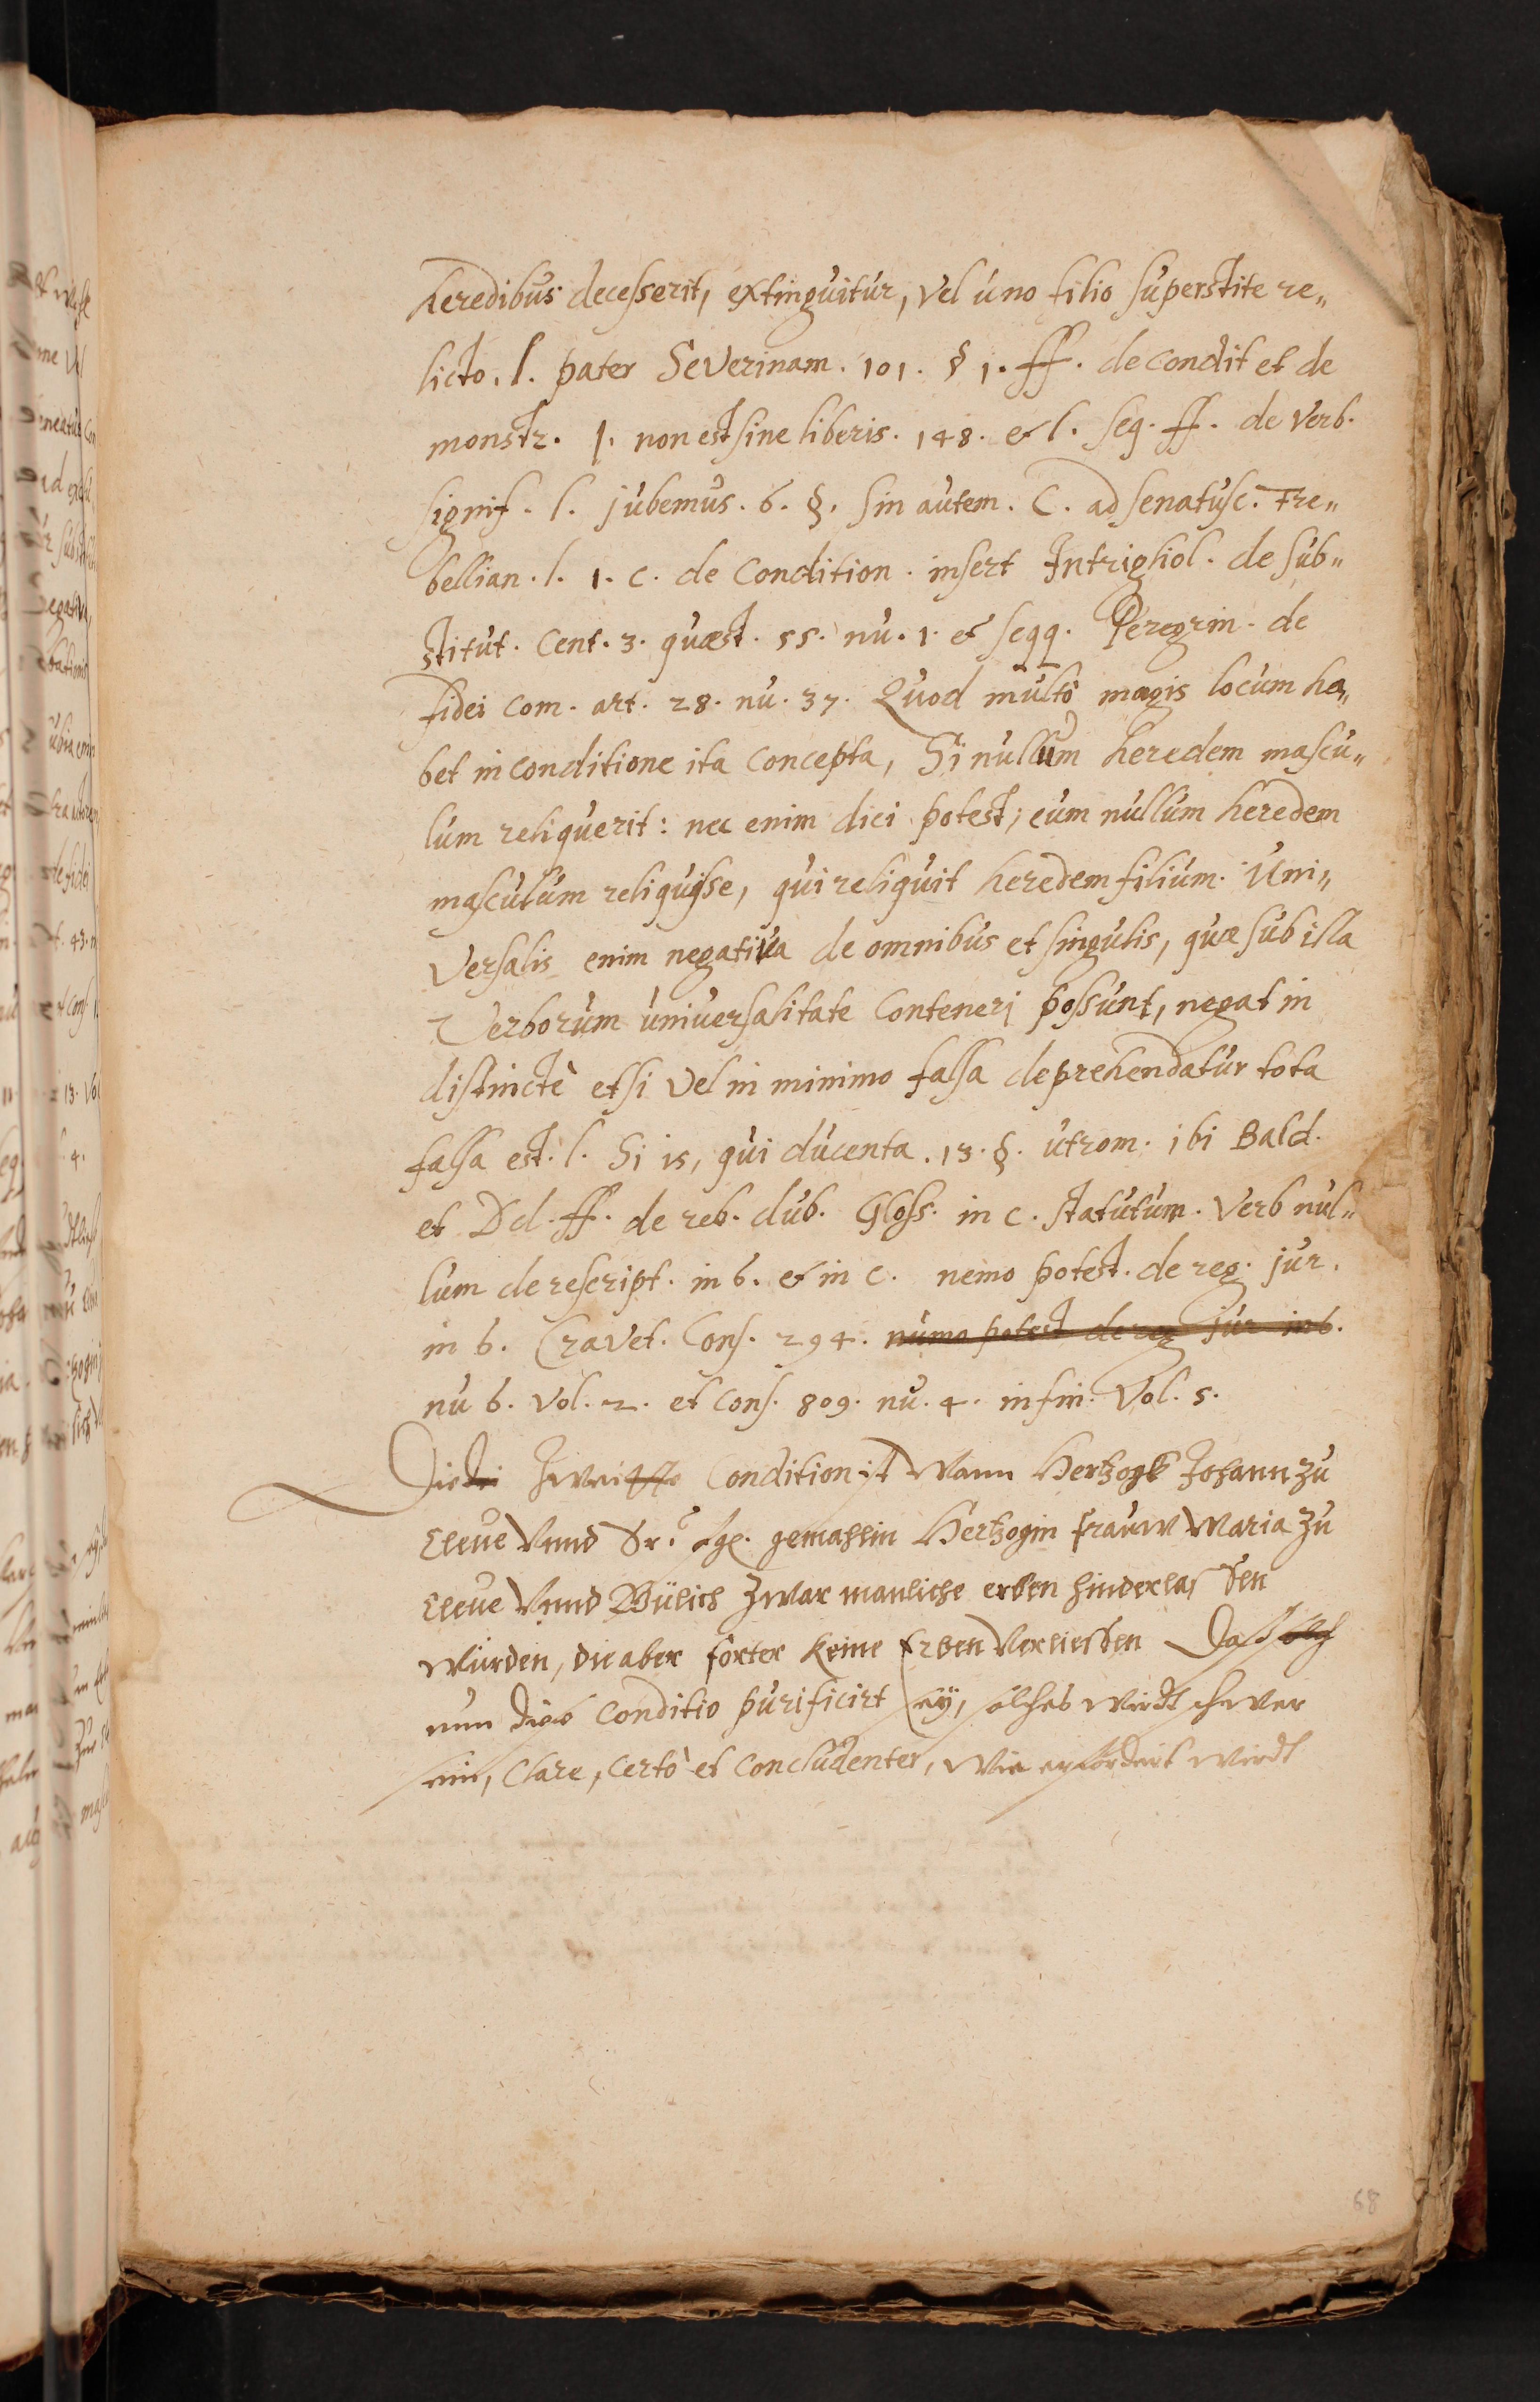 heredibus decesserit, extinguitur, vel uno filio superstite re„
licto. l. pater Severinam. 101. § 1. ff. de condit et de
monstr. l. non est sine liberis. 148. et l. seq. ff. de verb.
signif. l. jubemus. 6. §. sin autem. C. ad senatusc. Tre„
bellian. l. 1. c. de Condition. insert Intrigliol. de sub„
stitut. Cent. 3. quæst. 55. nu. 1. et seqq. Peregrin. de
fidei com. art. 28. nu. 37. Quod multò magis locum ha„
bet in conditione ita concepta, Si nullum heredem mascu„
lum reliquerit: nec enim dici potest, eum nullum heredem
masculum reliquisse, qui reliquit heredem filium. Uni„
versalis enim negativa de omnibus et singulis, quæ sub illa
Verborum universalitate conteneri possunt, negat in
distinctè et si vel in minimo falsa deprehendatur tota
falsa est. l. Si is, qui ducenta. 13. §. utrom. ibi Bald.
et Dd. ff. de reb. dub. Gloss. in c. statutum. verb nul„
lum de rescript. in 6. et in c. nemo potest. de reg. jur.
in 6. Cravet. Cons. 294. numo potest de reg jur in 6.
nu 6. vol. 2. et Cons. 809. nu. 4. in fin. Vol. 5.
Die Zweitte Condition ist Wann Hertzogk Johann zu
Cleve Vnnd Sr. gemahlin Hertzogin frauw Maria zu
Cleve Vnnd Gülich zwar manliche erben hinderlassen
würden, die aber förter keine Erben verliessen Dass
nun diese Conditio purificirt sey, solches wirdt schwer
sein, Clare, certò et concludenter, wie erfordert wirdt
68